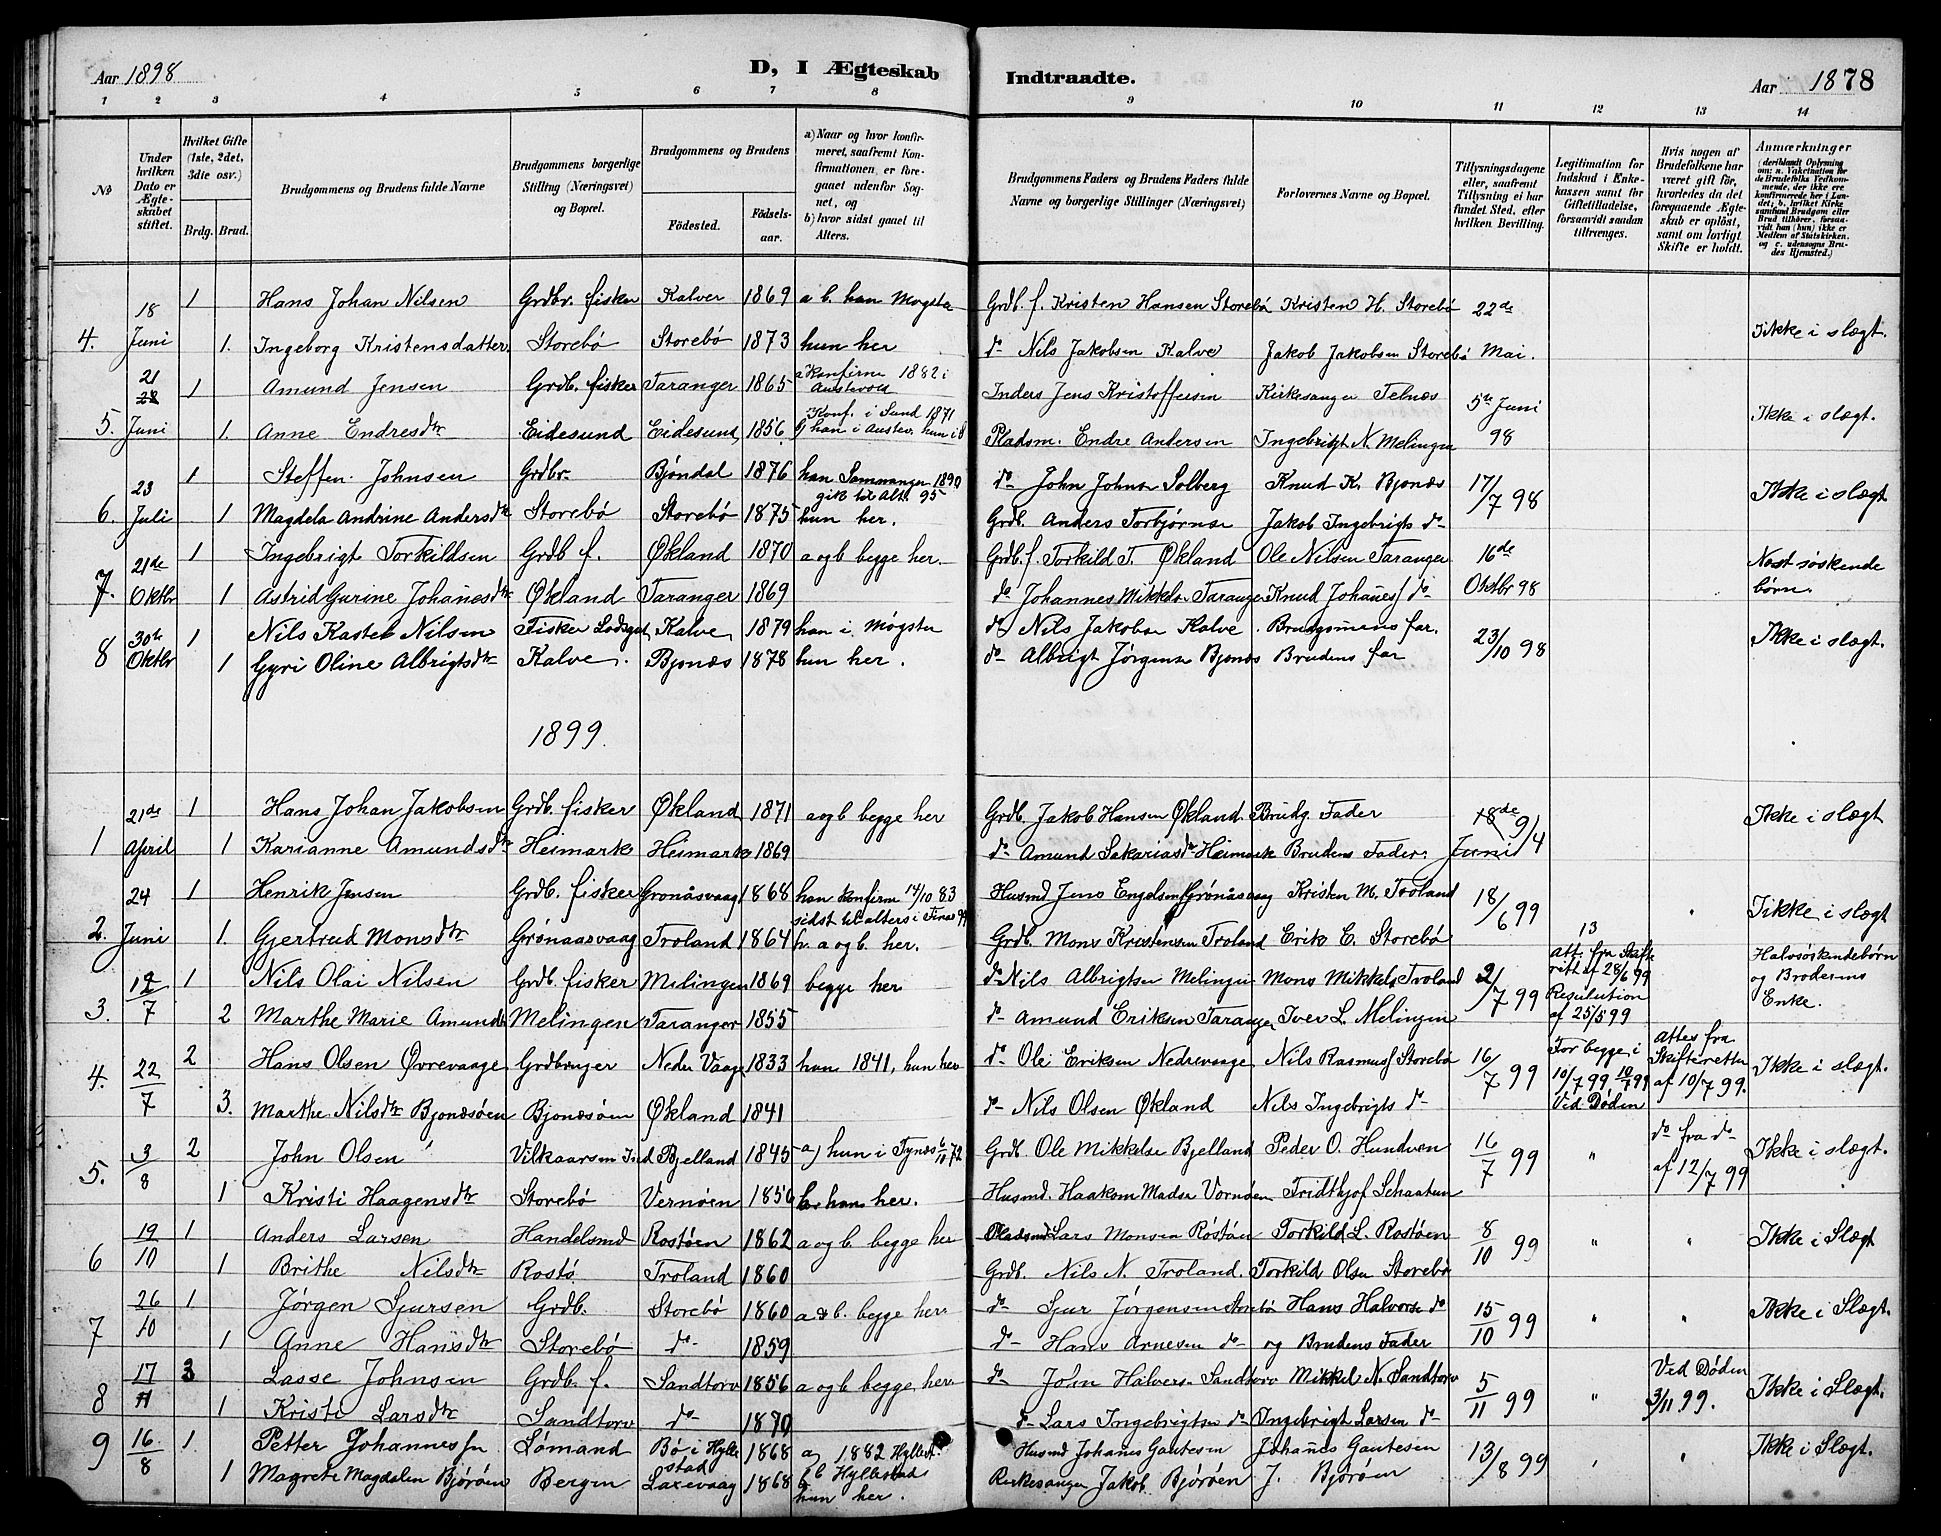 Aar 1898
D, I Ægteskab
Indtraadte.
Aar 1878
1 2 3 4 5 6 7 8 9 10 11 12 13 14
No
Under hvilken Dato er Ægteskabet stiftet.
Hvilket Gifte (1ste, 2det, 3die osv.)
Brdg. Brud.
Brudgommens og Brudens fulde Navne
Brudgommens borgerlige Stilling (Næringsvei) og Bopæl.
Brudgommens og Brudens
Fødested. Fødselsaar.
a) Naar og hvor konfirmeret, saafremt Konfirmationen er foregaaet udenfor Sognet, og
b) hvor sidst gaaet til Alters.
Brudgommens Faders og Brudens Faders fulde Navne og borgerlige Stillinger (Næringsvei)
Forlovernes Navne og Bopæl.
Tillysningsdagene eller, saafremt Tillysning ei har fundet Sted, efter hvilken Bevilling.
Legitimation for Indskud i Enkekassen samt for Giftetilladelse, forsaavidt saadan tiltrænges.
Hvis nogen af Brudefolkene har været gift før, hvorledes da det foregaaende Ægteskab er opløst, samt om lovligt Skifte er holdt.
Anmærkninger
(deriblandt Oplysning om: a. Vakcination for de Brudefolks Vedkommende, der ikke ere konfirmerede her i Landet; b. hvilket Kirkesamfund Brudgom eller Brud tilhører, forsaavidt han (hun) ikke er Medlem af Statskirken. og c. udensogns Brudes Hjemsted.)
18 1 Hans Johan Nilsen Grdbr. fisker Kalver 1869 a b. han Møgster Grdb. f. Kristen Hansen Storebø Kristen H. Storebø 22de
4. Juni 1. Ingeborg Kristensdatter Storebø Storebø 1873 hun her do Nils Jakobsen Kalve Jakob Jakobsen Storebø Mai. Ikke i slægt.
21 1 Amund Jensen Grdb. fisker Taranger 1865 a Konfirm 1882 i Austevold Inders Jens Kristoffersen Kirkesanger Telnæs 5te Juni
5. Juni 1. Anne Endresdtr Eidesund Eidesund 1856 Konf. i Sund 1871 b han i Austev. hun i S Pladsm. Endre Andersen Ingebrigt N. Melingen 98 Ikke i slægt.
23 1 Steffen Johnsen Grdbr. Bjøndal 1876 han Samnanger 1890 gik til Alt. 95 do John Johnse Solberg Knud K. Bjonæs 17/7 98
6. Juli 1 Magdela Andrine Andersdtr Storebø Storebø 1875 hun her. Grdb. Anders Torbjørnse Jakob Ingebrigts do Ikke i slægt
21de 1 Ingebrigt Torkildsen Grdb f. Økland 1870 a og b begge her. Grdb. f. Torkild T. Økland Ole Nilsen Taranger 16de
7. Oktbr 1 Astrid Gurine Johanesdtr Økland Taranger 1869 do Johannes Mikkels. Taranger Knud Johanes do Oktbr 98 Næst søskende børn.
30te 1 Nils Kastel Nilsen Fisker Kalve 1879 han i Møgster do Nils Jakobse Kalve Brudgomens far. 23/10 98
8 Oktbr 1 Gyri Oline Albrigtsdtr Kalve. Bjonæs 1878 hun her. do Albrigt Jørgense Bjonæs Brudens far Ikke i slægt.
1899.
21de 1 Hans Johan Jakobsen Grdb. fisker Økland 1871 a og b begge her Grdb. Jakob Hansen Økland. Brudg. Fader 18de 9/4
1 April 1 Karianne Amundsdtr Heimark Heimark 1869 do Amund Sakarias Heimark Brudens Fader. Juni Ikke i slægt
24 1 Henrik Jensen Grdb. fisker Gronåsvaag 1868 han konfirm 14/10 83 sidst til alters i 99 Husmd Jens Engelsen Grønåsvaag Kristen M. Troland 18/6 99
2. Juni 1. Gjertrud Monsdtr Grønaasvaag Troland 1864 a og b. her. Grdb. Mons Kristensen Troland Erik E. Storebø Ikke i slægt
12/7 1 Nils Olai Nilsen Grdb. fisker Melingen 1869 begge her do Nils Albrigtsen Melingen Mons Mikkels Troland 2/7 99 13 Att. fra Skifterett af 28/6 99 Resulution af 25/5 99 Halvsøskendebørn og Broderens Enke.
3. 2 Marthe Marie Amunds Melingen Taranger 1855 do Amund Eriksen Taranger Iver L. Melingen
4. 22/7 2 Hans Olsen Øvrevaage Grdbruger Neder Vaage 1833 han 1841, hun her do Ole Eriksen Nedrevaage Nils Rasmus Storebø 16/7 99 For begge i 10/7 99 10/7 99 Ved Døden Attes fra Skifteretten af 10/7 99. Ikke i slægt.
3. Marthe Nilsdtr Bjonæsøen Bjonæsøen Økland 1841 do Nils Olsen Økland Nils Ingebrigts do
5. 3/8 2 John Olsen Vilkaarsm Bjelland 1845 a) hun i Tynes 6/10 72 Grdb. Ole Mikkelse Bjelland Peder O. Hundven 16/7 99 " do fra do af 12/7 99 Ikke i slægt.
1 Kristi Haagensdtr Storebø Vernøen 1856 han her. Husmd. Haakon Madse Vornøen Fridthjof Schaatun
6 19/10 1 Anders Larsen Handelsmd Rostøen 1862 a og b. begge her Pladsmd Lars Monsen Rostøen Torkild L. Rostøen 8/10 99 " " Ikke i Slægt
1 Brithe Nilsdtr Rostø Troland 1860 Grdb. Nils N. Troland. Torkild Olsen Storebø
7 26/10 1 Jørgen Sjursen Grdb. Storebø 1860 a & b. begge her do Sjur Jørgensen Storebø Hans Halvorse do 15/10 99 " " Ikke i Slægt.
1 Anne Hansdtr Storebø do 1859 do Hans Arnesen do og Brudens Fader
8 17/11 3 Lasse Johnsen Grdb. f. Sandtorv 1856 a og b begge her do John Halvers. Sandtorv Mikkel N. Sandtorv 5/11 99 " Ved Døden 3/11 99. Ikke i Slægt.
1 Kristi Larsdtr Sandtorv do 1870 do Lars Ingebrigtsen do Ingebrigt Larsen do
9 16/8 1 Petter Johannes Lømand Bø i Hyllestad 1868 a) 1882 Hyllest. b Hyllestad Husmd Johanes Gautesen Johanes Gautesen 13/8 99 " " Ikke i Slægt.
1 Magrete Magdalen Bjørøen Bergen Laxevaag 1868 hun her. Kirkesanger Jakob Bjørøen J. Bjørøen